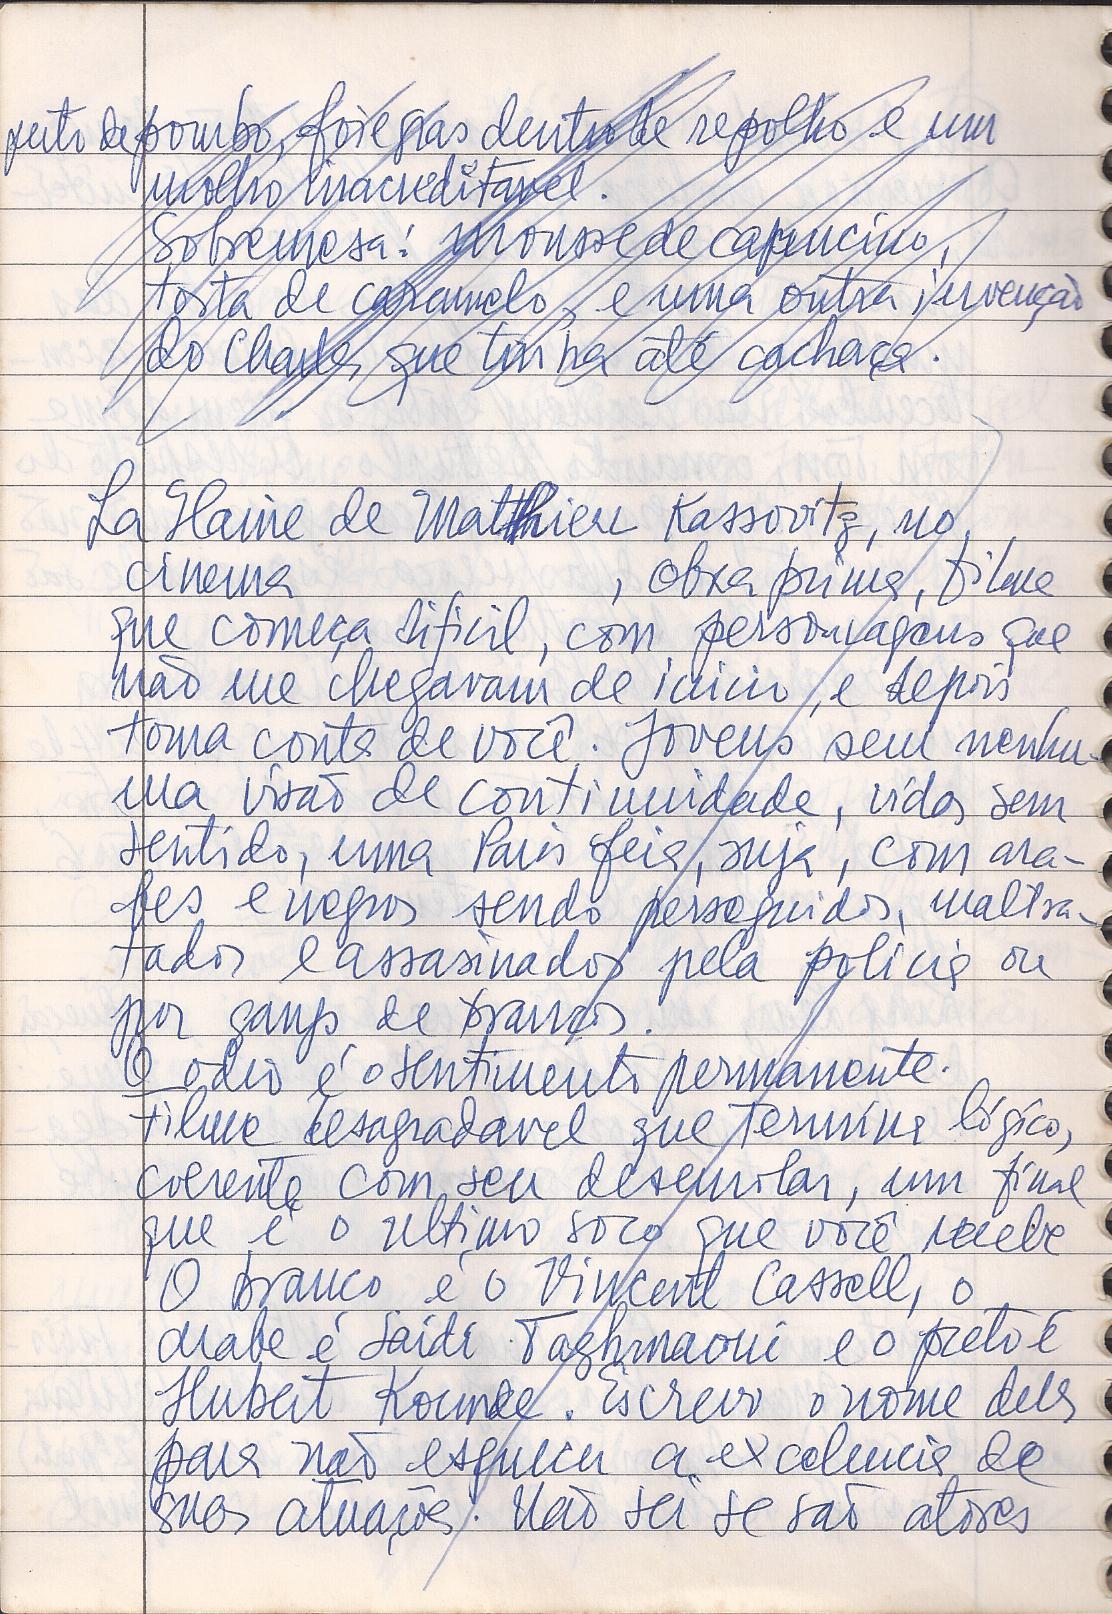 peito de pombo, foie gras dentro de repolho e um
molho inacreditavel.
Sobremesa: mousse de capuccino,
torta de caramelo, e uma outra invenção
do Charles que tinha até cachaça.
La Haine de Matthieu Kassovitz, no
cinema , obra prima, filme
que começa dificil, com personagens que
não me chegavam de inicio, e depois
toma conta de você. Jovens sem nenhu-
ma visão de continuidade, vidas sem
sentido, uma Paris feia, suja, com ara-
bes e negros sendo perseguidos, maltra-
tados e assasinados pela policia ou
por gangs de brancos.
O odio é o sentimento permanente.
Filme desagradavel que termina lógico,
coerente com seu desenrolar, um final
que é o ultimo soco que você recebe
O branco é o Vincent Cassell, o
arabe é Saidi Taghmaoui e o preto é
Hubert Kounde. Escrevo o nome deles
para não esquecer a excelencia de
suas atuações. Não sei se são atores